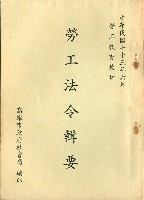 中華民國七十三年六月
勞工教育教材
勞工法令輯要
高雄市政府社會局 編印